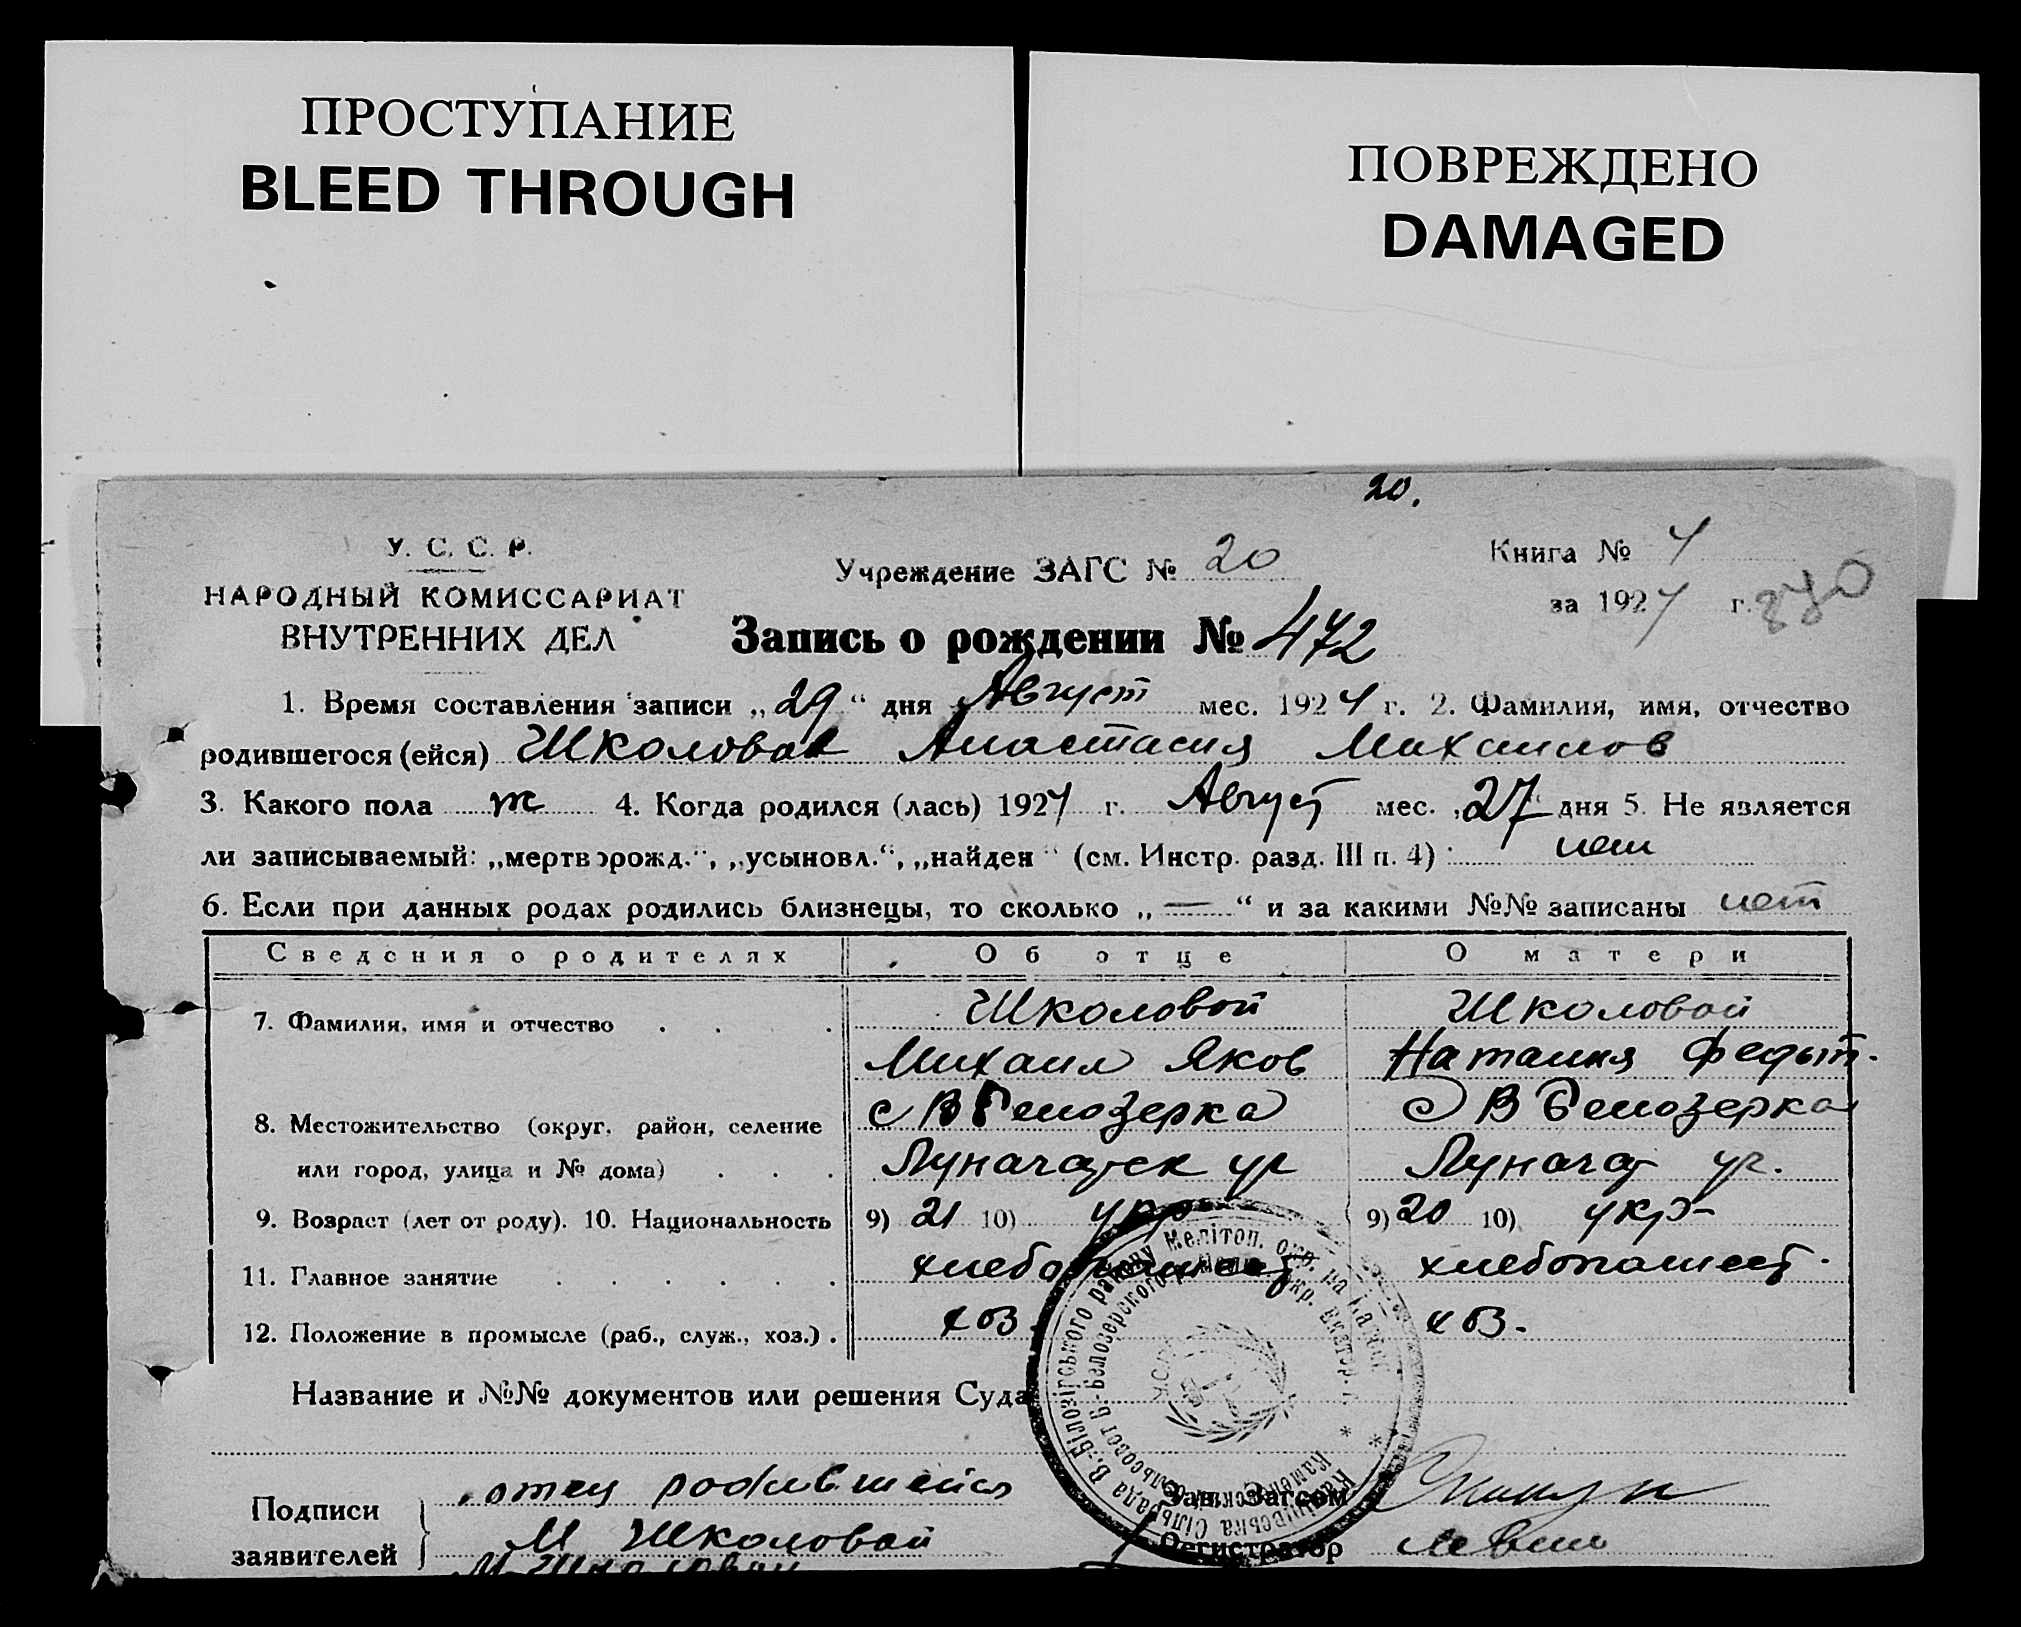 ПРОСТУПАНИЕ
BLEED THROUGH
ПОВРЕЖДЕНО
DAMAGED
20.
У. С. С. Р.
НАРОДНЫЙ КОМИССАРИАТ
ВНУТРЕННИХ ДЕЛ
Учреждение ЗАГС № 20
Книга № 4
за 1924 г.
Запись о рождении № 472
1. Время составления записи „29“ дня Август мес. 1924 г. 2. Фамилия, имя, отчество
родившегося (ейся) Школовая Анастасия Михаилов
3. Какого пола ж 4. Когда родился (лась) 1924 г. Август мес. „27“ дня 5. Не является
ли записываемый: „мертворожд.“, „усыновл.“, „найден“ (см. Инстр. разд. III п. 4) нет
6. Если при данных родах родились близнецы, то сколько „—“ и за какими №№ записаны нет
Сведения о родителях Об отце О матери
7. Фамилия, имя и отчество . . . Школовой Школовой
Михаил Яков Наталия Федыт.
8. Местожительство (округ, район, селение с В Белозерка с В Белозерка
или город, улица и № дома) . . . Луначарск ул Луначар ул.
9. Возраст (лет от роду). 10. Национальность 9) 21 10) укр 9) 20 10) укр-
11. Главное занятие . . . . . . хлебопашест хлебопашест.
12. Положение в промысле (раб., служ., хоз.) . хоз. хоз.
Название и №№ документов или решения Суда
Подписи
заявителей
отец родившейся
М Школовой
Зав. Загсом
Регистратор